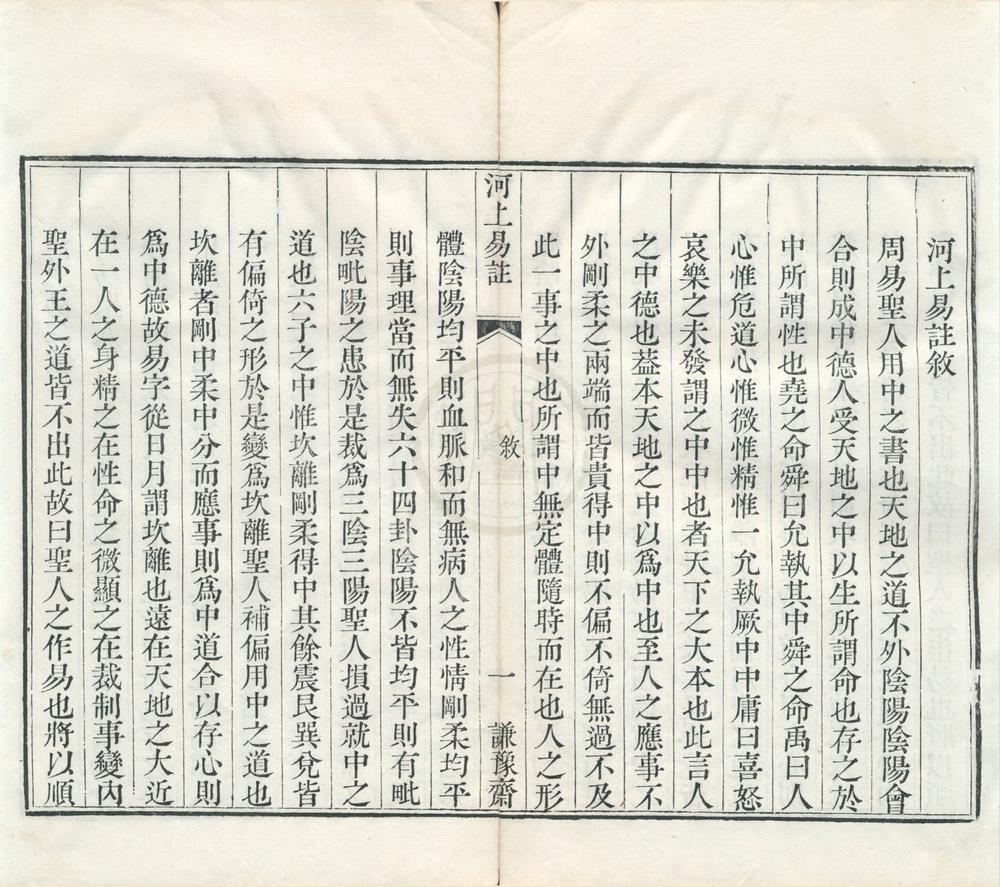 河上易註敘
周易聖人用中之書也天地之道不外陰陽陰陽會
合則成中德人受天地之中以生所謂命也存之於
中所謂性也堯之命舜曰允執其中舜之命禹曰人
心惟危道心惟微惟精惟一允執厥中中庸曰喜怒
哀樂之未發謂之中中也者天下之大本也此言人
之中德也葢本天地之中以爲中也至人之應事不
外剛柔之兩端而皆貴得中則不偏不倚無過不及
此一事之中也所謂中無定體隨時而在也人之形
河上易註
敘
一
謙豫齋
體陰陽均平則血脈和而無病人之性情剛柔均平
則事理當而無失六十四卦陰陽不皆均平則有毗
陰毗陽之患於是裁爲三陰三陽聖人損過就中之
道也六子之中惟坎離剛柔得中其餘震艮巽兌皆
有偏倚之形於是變爲坎離聖人補偏用中之道也
坎離者剛中柔中分而應事則爲中道合以存心則
爲中德故易字從日月謂坎離也遠在天地之大近
在一人之身精之在性命之微顯之在裁制事變內
聖外王之道皆不出此故曰聖人之作易也將以順